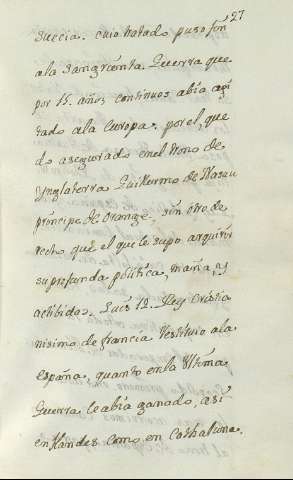 27
Suecia. cuio tratado puso fin
ala sangrienta Guerra que
por 15. años continuos abia agi
tado ala Europa. por el, que
do asegurado enel trono de
Ynglaterra Guillermo de Nasau
principe de Orange. sin otro de
recho que el que le supo arquirir
su profunda politica, maña, y
actibidos. Luis 12. Rey Cristia
nisimo de francia restituio ala
España, quanto enla Ultima
Guerra le abia ganado, asi
en Flandes como en Cathaluna.